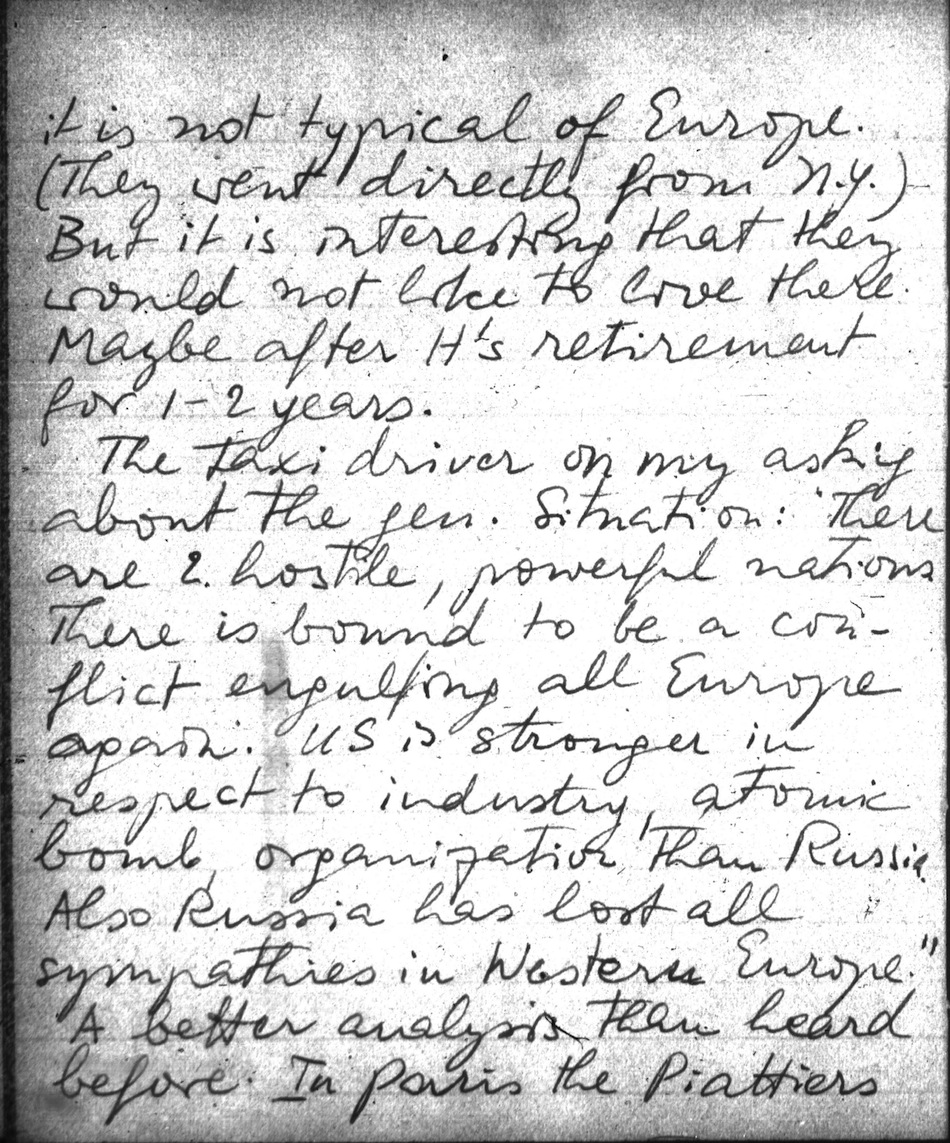 it is not typical of Europe.
(They went directly from N.Y.)
But it is interesting that they
would not like to live there.
Maybe after H's retirement
for 1-2 years.
The taxi driver on my asking
about the gen. Situation: "There
are 2. hostile, powerful nations
There is bound to be a con-
flict engulfing all Europe
again. US is stronger in
respect to industry, atomic
bomb, organization than Russia.
Also Russia has lost all
sympathies in Western Europe."
A better analysis than heard
before. In Paris the Piattiers